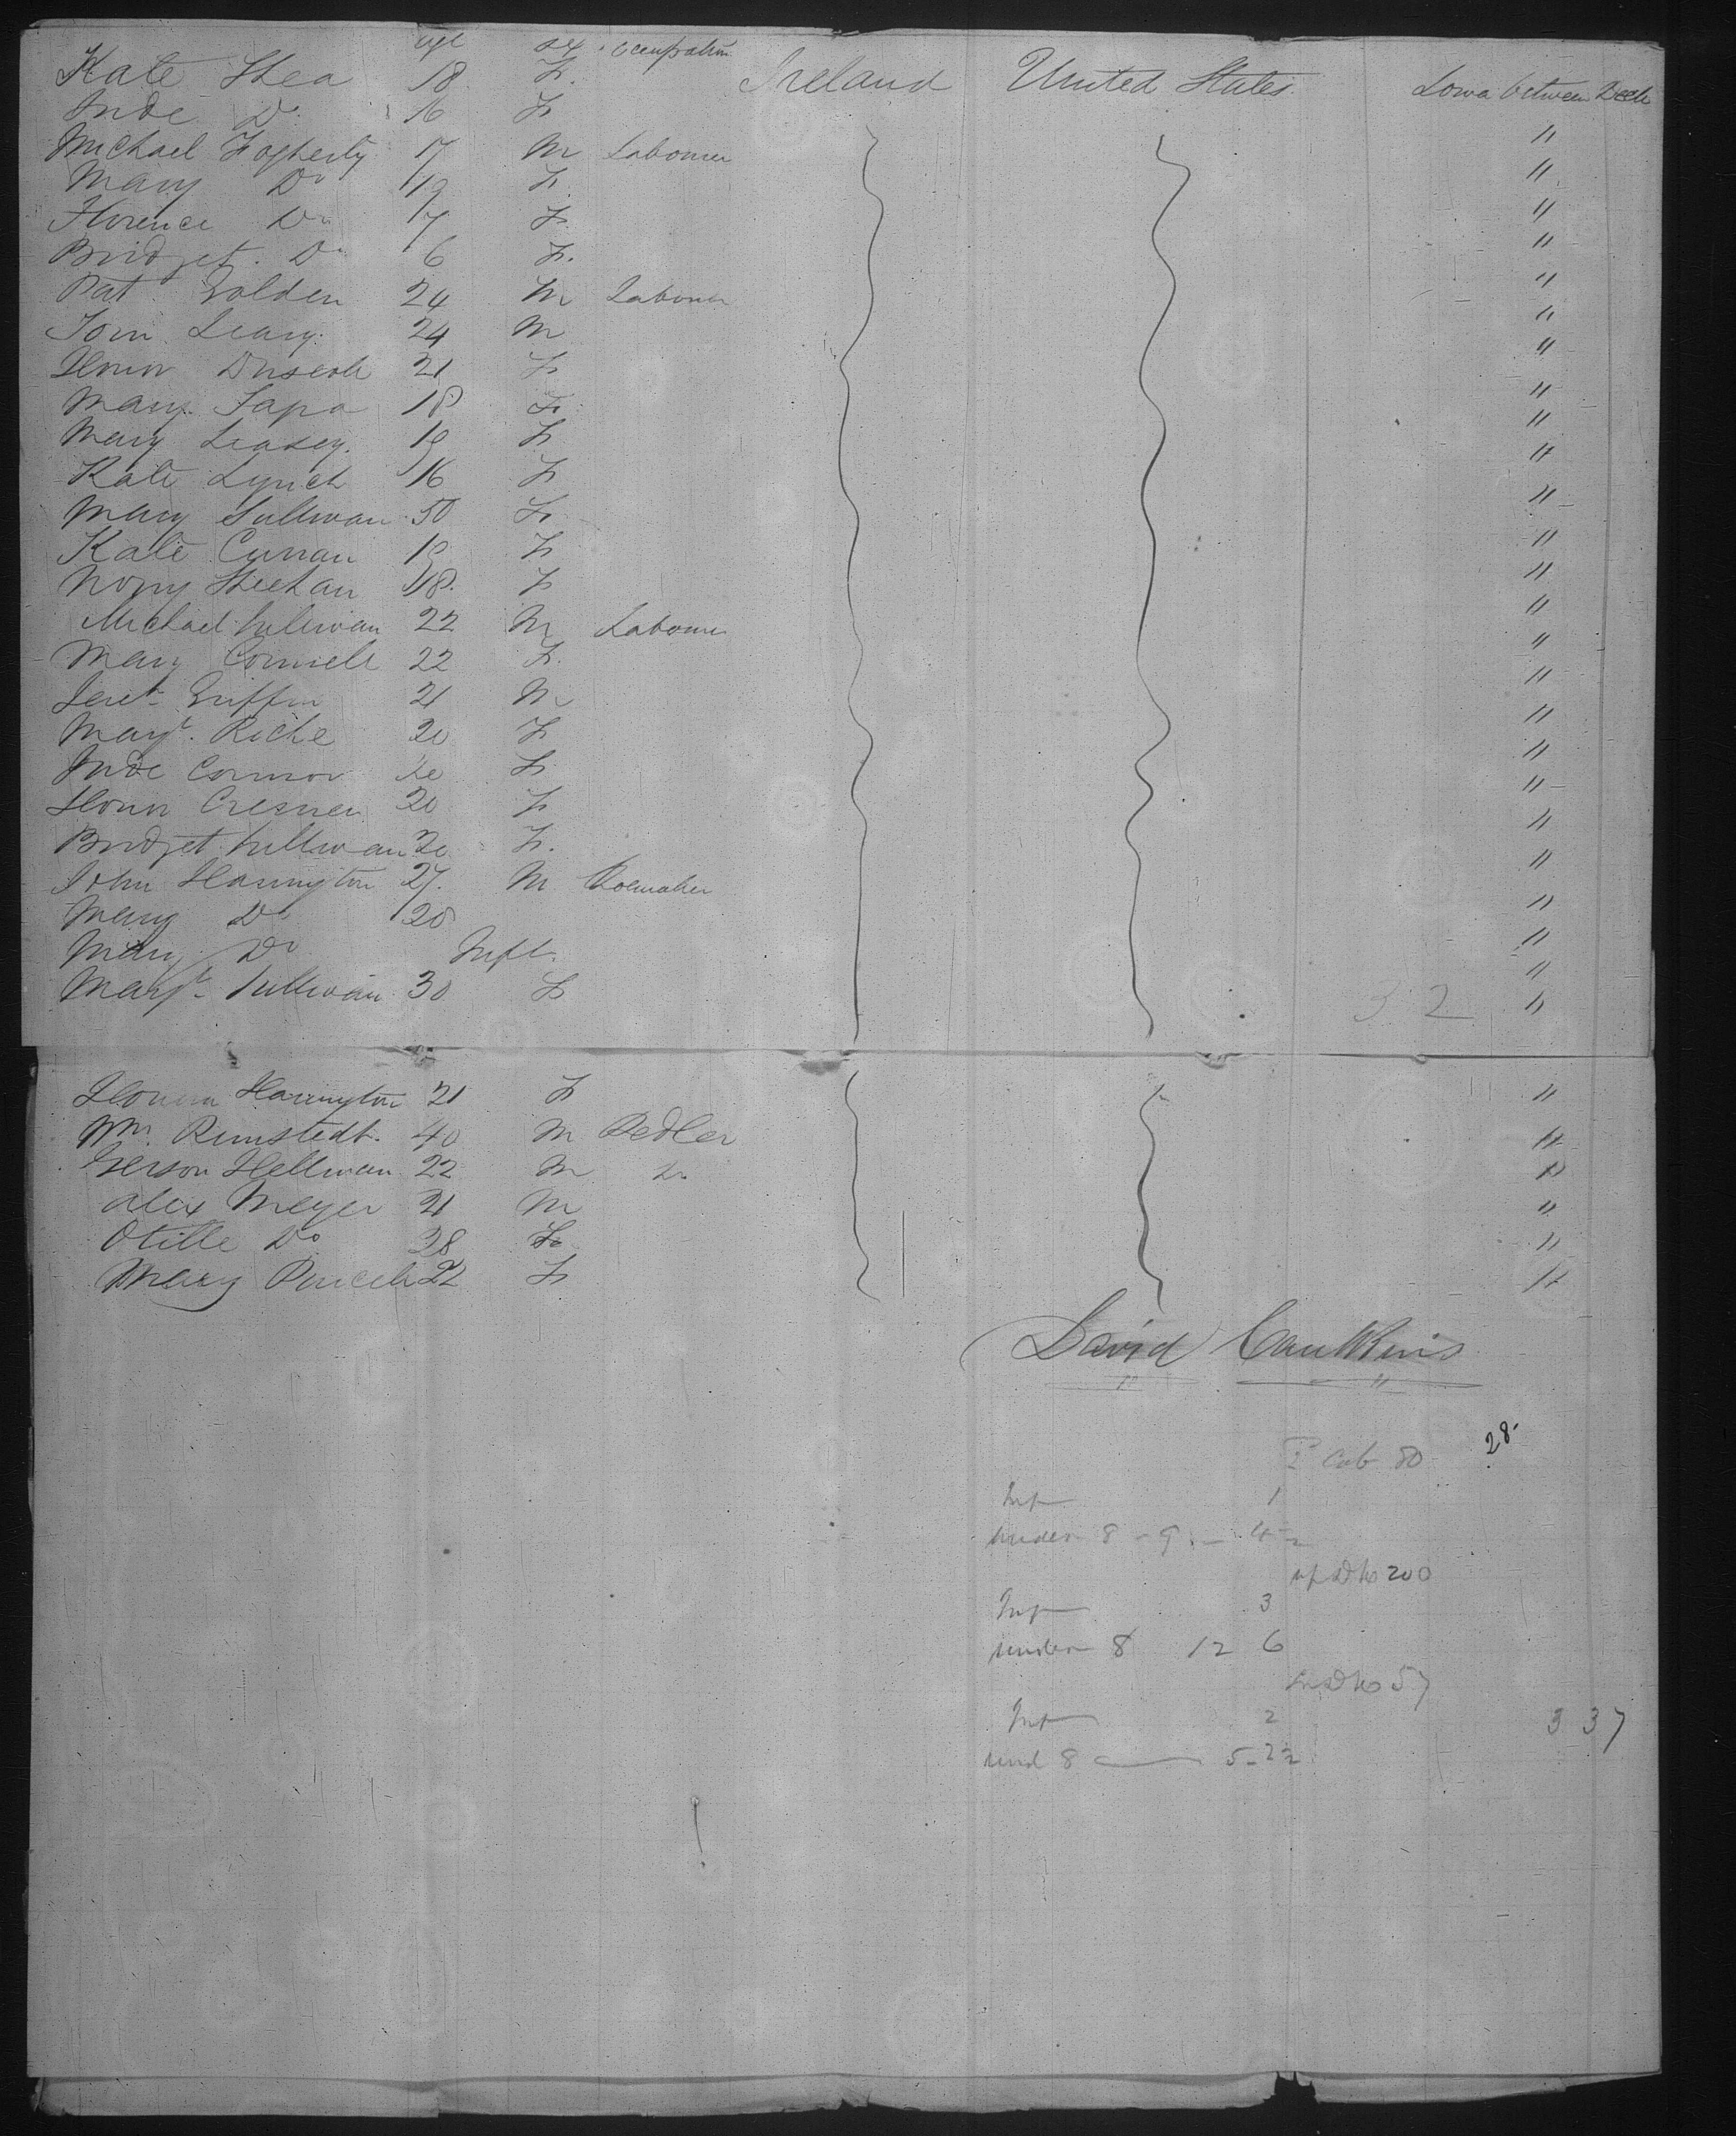 age sex occupation
Kate Shea 18 F. Ireland United States Lower between Deck
Jude Do 16 F "
Michael Fogherty 17 M Labourer "
Mary Do 19 F "
Florence Do 17 F "
Bridget Do 6 F. "
Pat Golden 24 M Labourer "
Tom Leary 24 M "
Honor Driscoll 21 F "
Mary 18 F "
Mary Leasey 18 F "
Kate Lynch 16 F "
Mary Sullivan 50 F "
Kate Curran 18 F "
Nony Sheehan 18 F "
Michael Sullivan 22 M Labourer "
Mary Connell 22 F. "
Griffin 21 M "
Margt. Riche 20 F "
Jude Connor 20 F "
Honor 20 F "
Bridget Sullivan 20 F. "
John Harrington 27. M Shoemaker "
Mary Do 20 "
Mary Do Inft. "
Margt Sullivan 30 F 32 "
Honora Harrington 21 F "
Wm. Rumstedt. 40 M Pedler "
Gerson Hellman 22 M Do "
Alex Meyer 21 M "
Otille Do 28 F "
Mary Purcell 22 F "
David Caulkins
28
Cab 80
Inf 1
under 8 - 9 - 4
up Dk 200
Inf 3
under 8 12 6
Dk 57
Inf 2
und 8 5
337